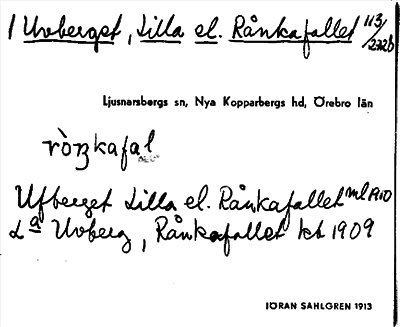 1 Uvberget, Lilla el. Rånkafallet 113/232b
Ljusnarsbergs sn, Nya Kopparbergs hd, Örebro län
Ufberget Lilla el. Rånkafallet ml 1910
La Uvberg, Rånkafallet kb 1909
JÖRAN SAHLGREN 1913